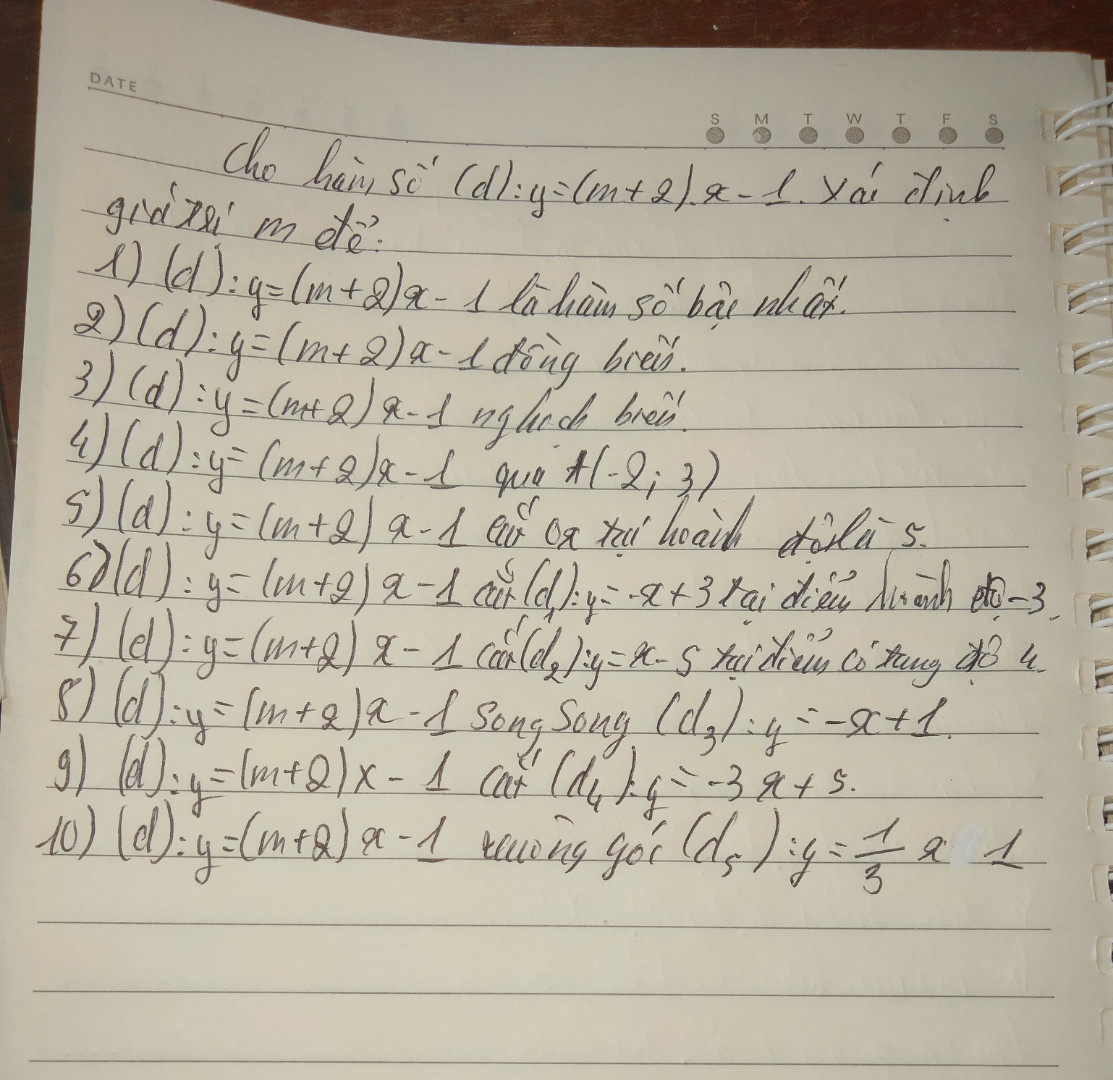 DATE
S M T W T F S
Cho hàm số (d): y=(m+2).x-1. Xác định
giá trị m để:
1) (d): y=(m+2)x-1 là hàm số bậc nhất.
2) (d): y=(m+2)x-1 đồng biến.
3) (d): y=(m+2)x-1 nghịch biến.
4) (d): y=(m+2)x-1 qua A(-2; 3)
5) (d): y=(m+2)x-1 cắt Ox tại hoành độ là 5.
6) (d): y=(m+2)x-1 cắt (d₁): y=-x+3 tại điểm hoành độ -3.
7) (d): y=(m+2)x-1 cắt (d₂): y=x-5 tại điểm có tung độ 4.
8) (d): y=(m+2)x-1 song song (d₃): y=-x+1.
9) (d): y=(m+2)x-1 cắt (d₄): y=-3x+5.
10) (d): y=(m+2)x-1 vuông góc (d₅): y=1/3 x 1